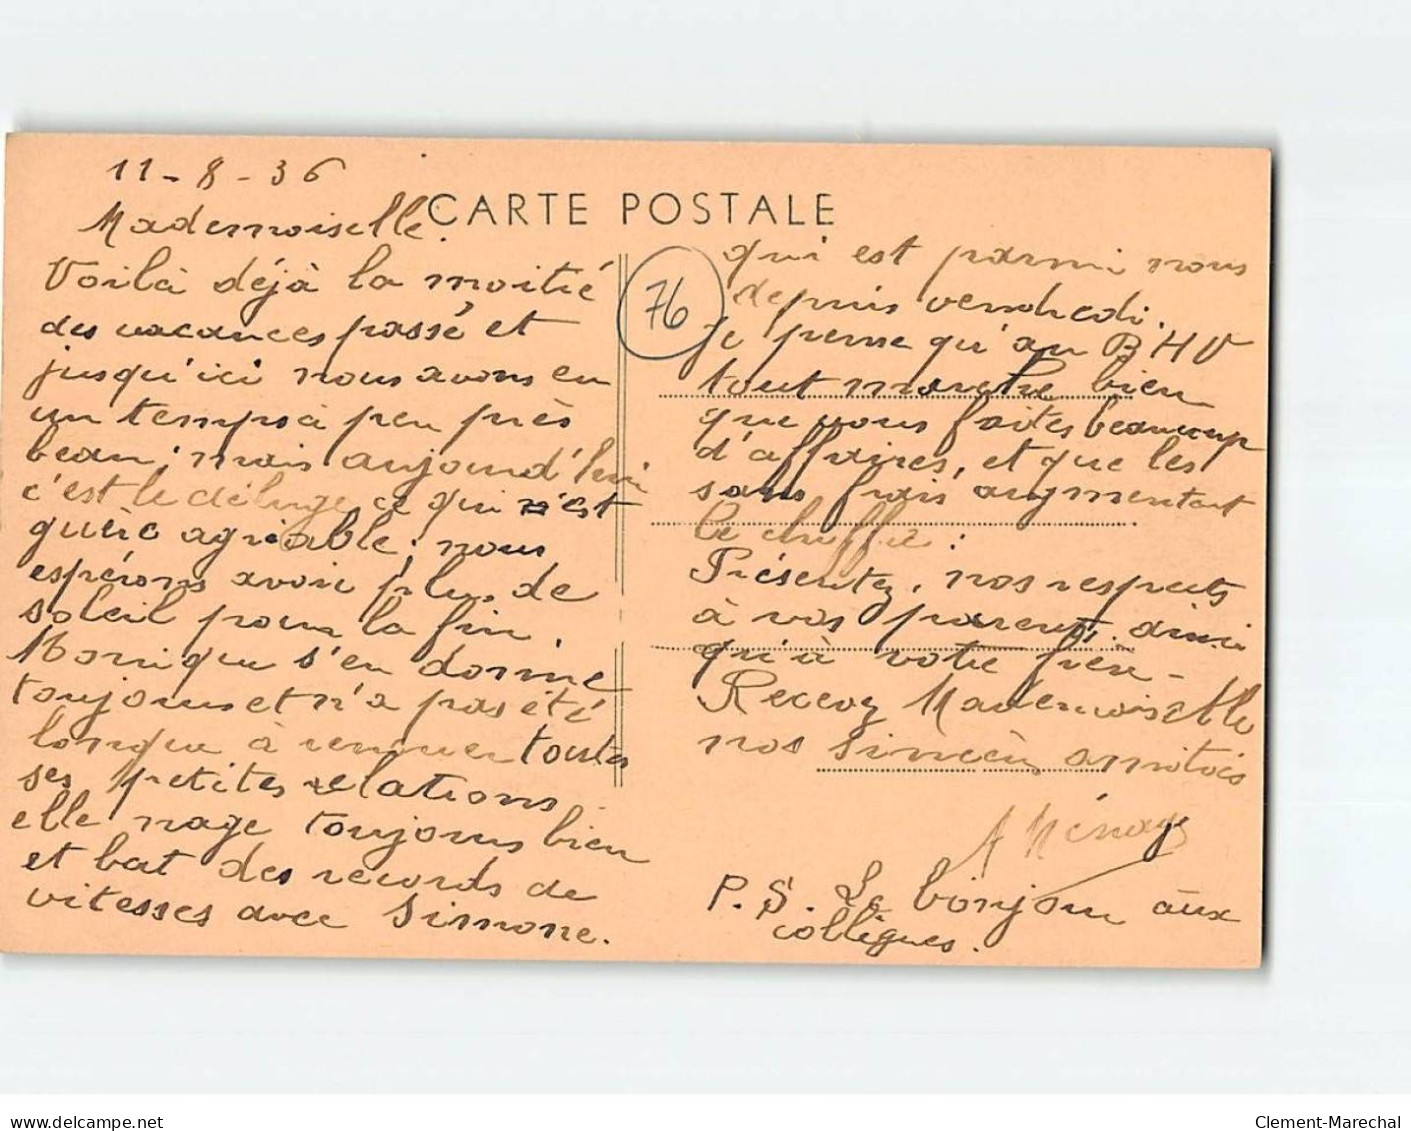 11-8-36
CARTE POSTALE
Mademoiselle.
Voilà déjà la moitié
des vacances passé et
jusqu'ici nous avons eu
un temps à peu près
beau; mais aujourd'hui
c'est le déluge ce qui n'est
guère agréable; nous
espérons avoir plus de
soleil pour la fin.
Monique s'en donne
toujours et n'a pas été
longue à renouer toutes
ses petites relations
elle nage toujours bien
et bat des records de
vitesses avec Simone.
76
qui est parmi nous
depuis vendredi.
Je pense qu'au BHV
tout marche bien
que vous faites beaucoup
d'affaires, et que les
sans frais augmentent
le chiffre:
Présentez, nos respects
à vos parents ainsi
qu'à votre frère-
Recevez Mademoiselle
nos sincères amitiés
A Ménage
P.S. Le bonjour aux
collègues.
www.delcampe.net
Clement-Marechal